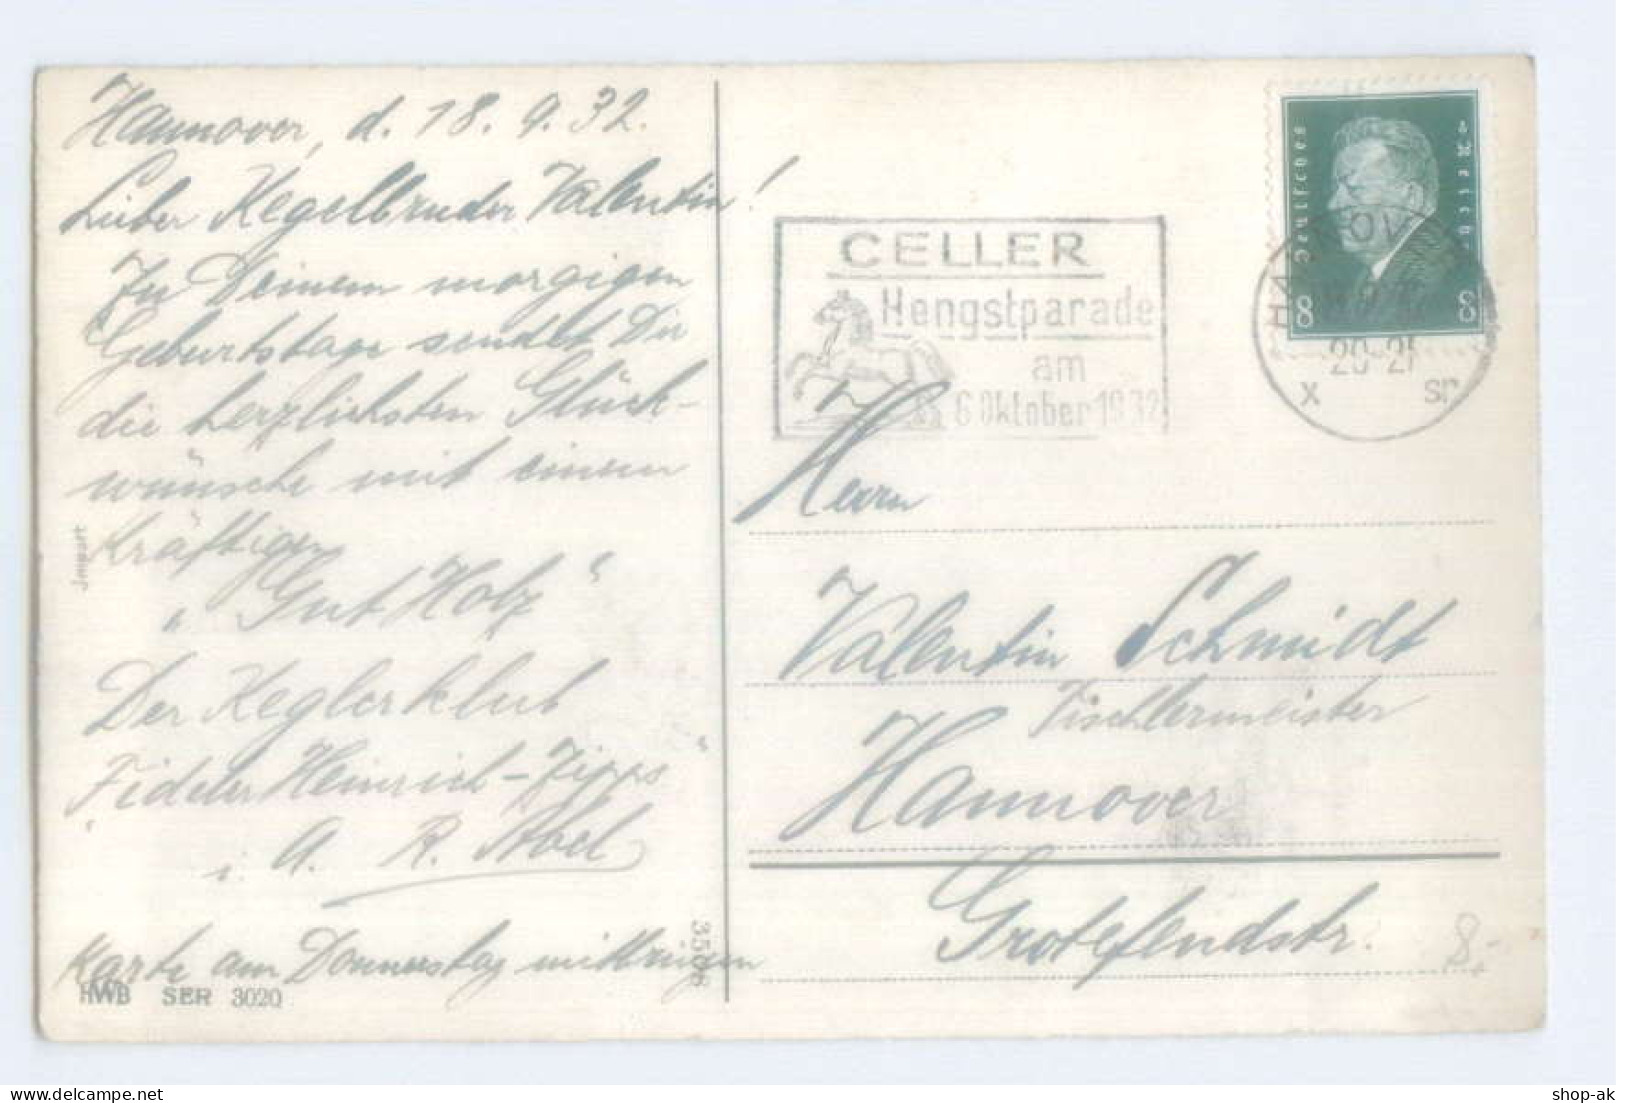 Hannover, d. 18.9.32.
Lieber Kegelbruder Valentin!
Zu Deinem morgigen
Geburtstage sendet Dir
die herzlichsten Glück-
wünsche mit einem
kräftigen
„Gut Holz“
Der Keglerklub
„Fideler Heinrich-Zipps“
i. A. R. Abel
Karte am Donnerstag mitbringen
Import
HWB SER 3020
CELLER
Hengstparade
am
6 Oktober 1932
Deutsches Reich
8 8
HANNOVER
20-21
x
Herrn
Valentin Schmidt
Tischlermeister
Hannover
Grotefendstr.
8,-
shop-ak